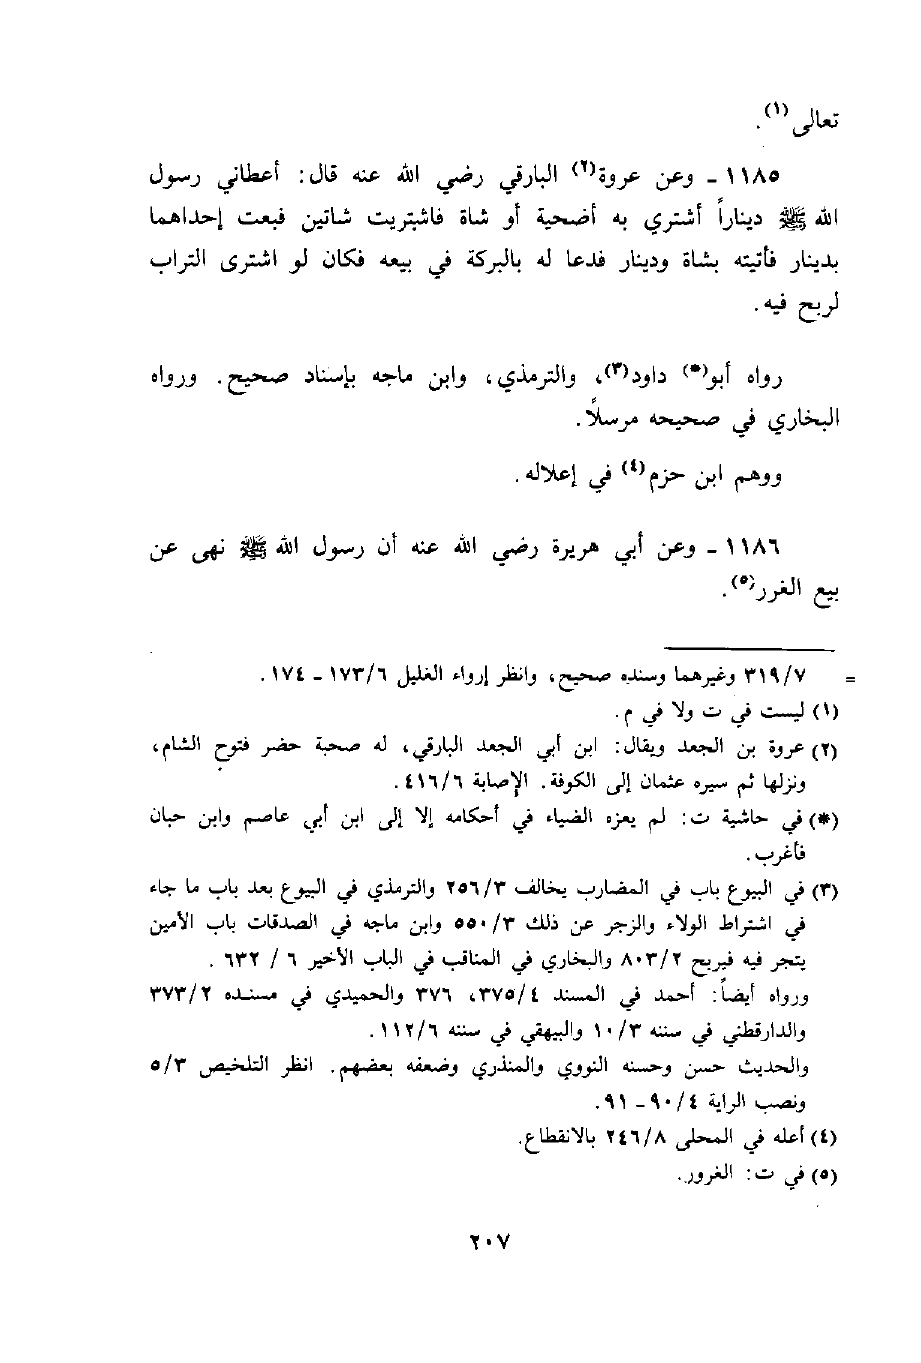 تعالى(١).
١١٨٥ ـ وعن عروة(٢) البارقي رضي الله عنه قال: أعطاني رسول
الله ﷺ ديناراً أشتري به أضحية أو شاة فاشتريت شاتين فبعت إحداهما
بدينار فأتيته بشاة ودينار فدعا له بالبركة في بيعه فكان لو اشترى التراب
لربح فيه.
رواه أبو(*) داود(٣)، والترمذي، وابن ماجه بإسناد صحيح. ورواه
البخاري في صحيحه مرسلاً.
ووهم ابن حزم(٤) في إعلاله.
١١٨٦ ـ وعن أبي هريرة رضي الله عنه أن رسول الله ﷺ نهى عن
بيع الغرر(٥).
= ٣١٩/٧ وغيرهما وسنده صحيح، وانظر إرواء الغليل ١٧٣/٦ ـ ١٧٤.
(١) ليست في ت ولا في م.
(٢) عروة بن الجعد ويقال: ابن أبي الجعد البارقي، له صحبة حضر فتوح الشام،
ونزلها ثم سيره عثمان إلى الكوفة. الإصابة ٤١٦/٦.
(*) في حاشية ت: لم يعزه الضياء في أحكامه إلا إلى ابن أبي عاصم وابن حبان
فأغرب.
(٣) في البيوع باب في المضارب يخالف ٢٥٦/٣ والترمذي في البيوع بعد باب ما جاء
في اشتراط الولاء والزجر عن ذلك ٥٥٠/٣ وابن ماجه في الصدقات باب الأمين
يتجر فيه فيربح ٨٠٣/٢ والبخاري في المناقب في الباب الأخير ٦ / ٦٣٢ .
ورواه أيضاً: أحمد في المسند ٣٧٥/٤، ٣٧٦ والحميدي في مسنده ٣٧٣/٢
والدارقطني في سننه ١٠/٣ والبيهقي في سننه ١١٢/٦.
والحديث حسن وحسنه النووي والمنذري وضعفه بعضهم. انظر التلخيص ٥/٣
ونصب الراية ٩٠/٤ ـ ٩١.
(٤) أعله في المحلى ٢٤٦/٨ بالانقطاع.
(٥) في ت: الغرور.
٢٠٧